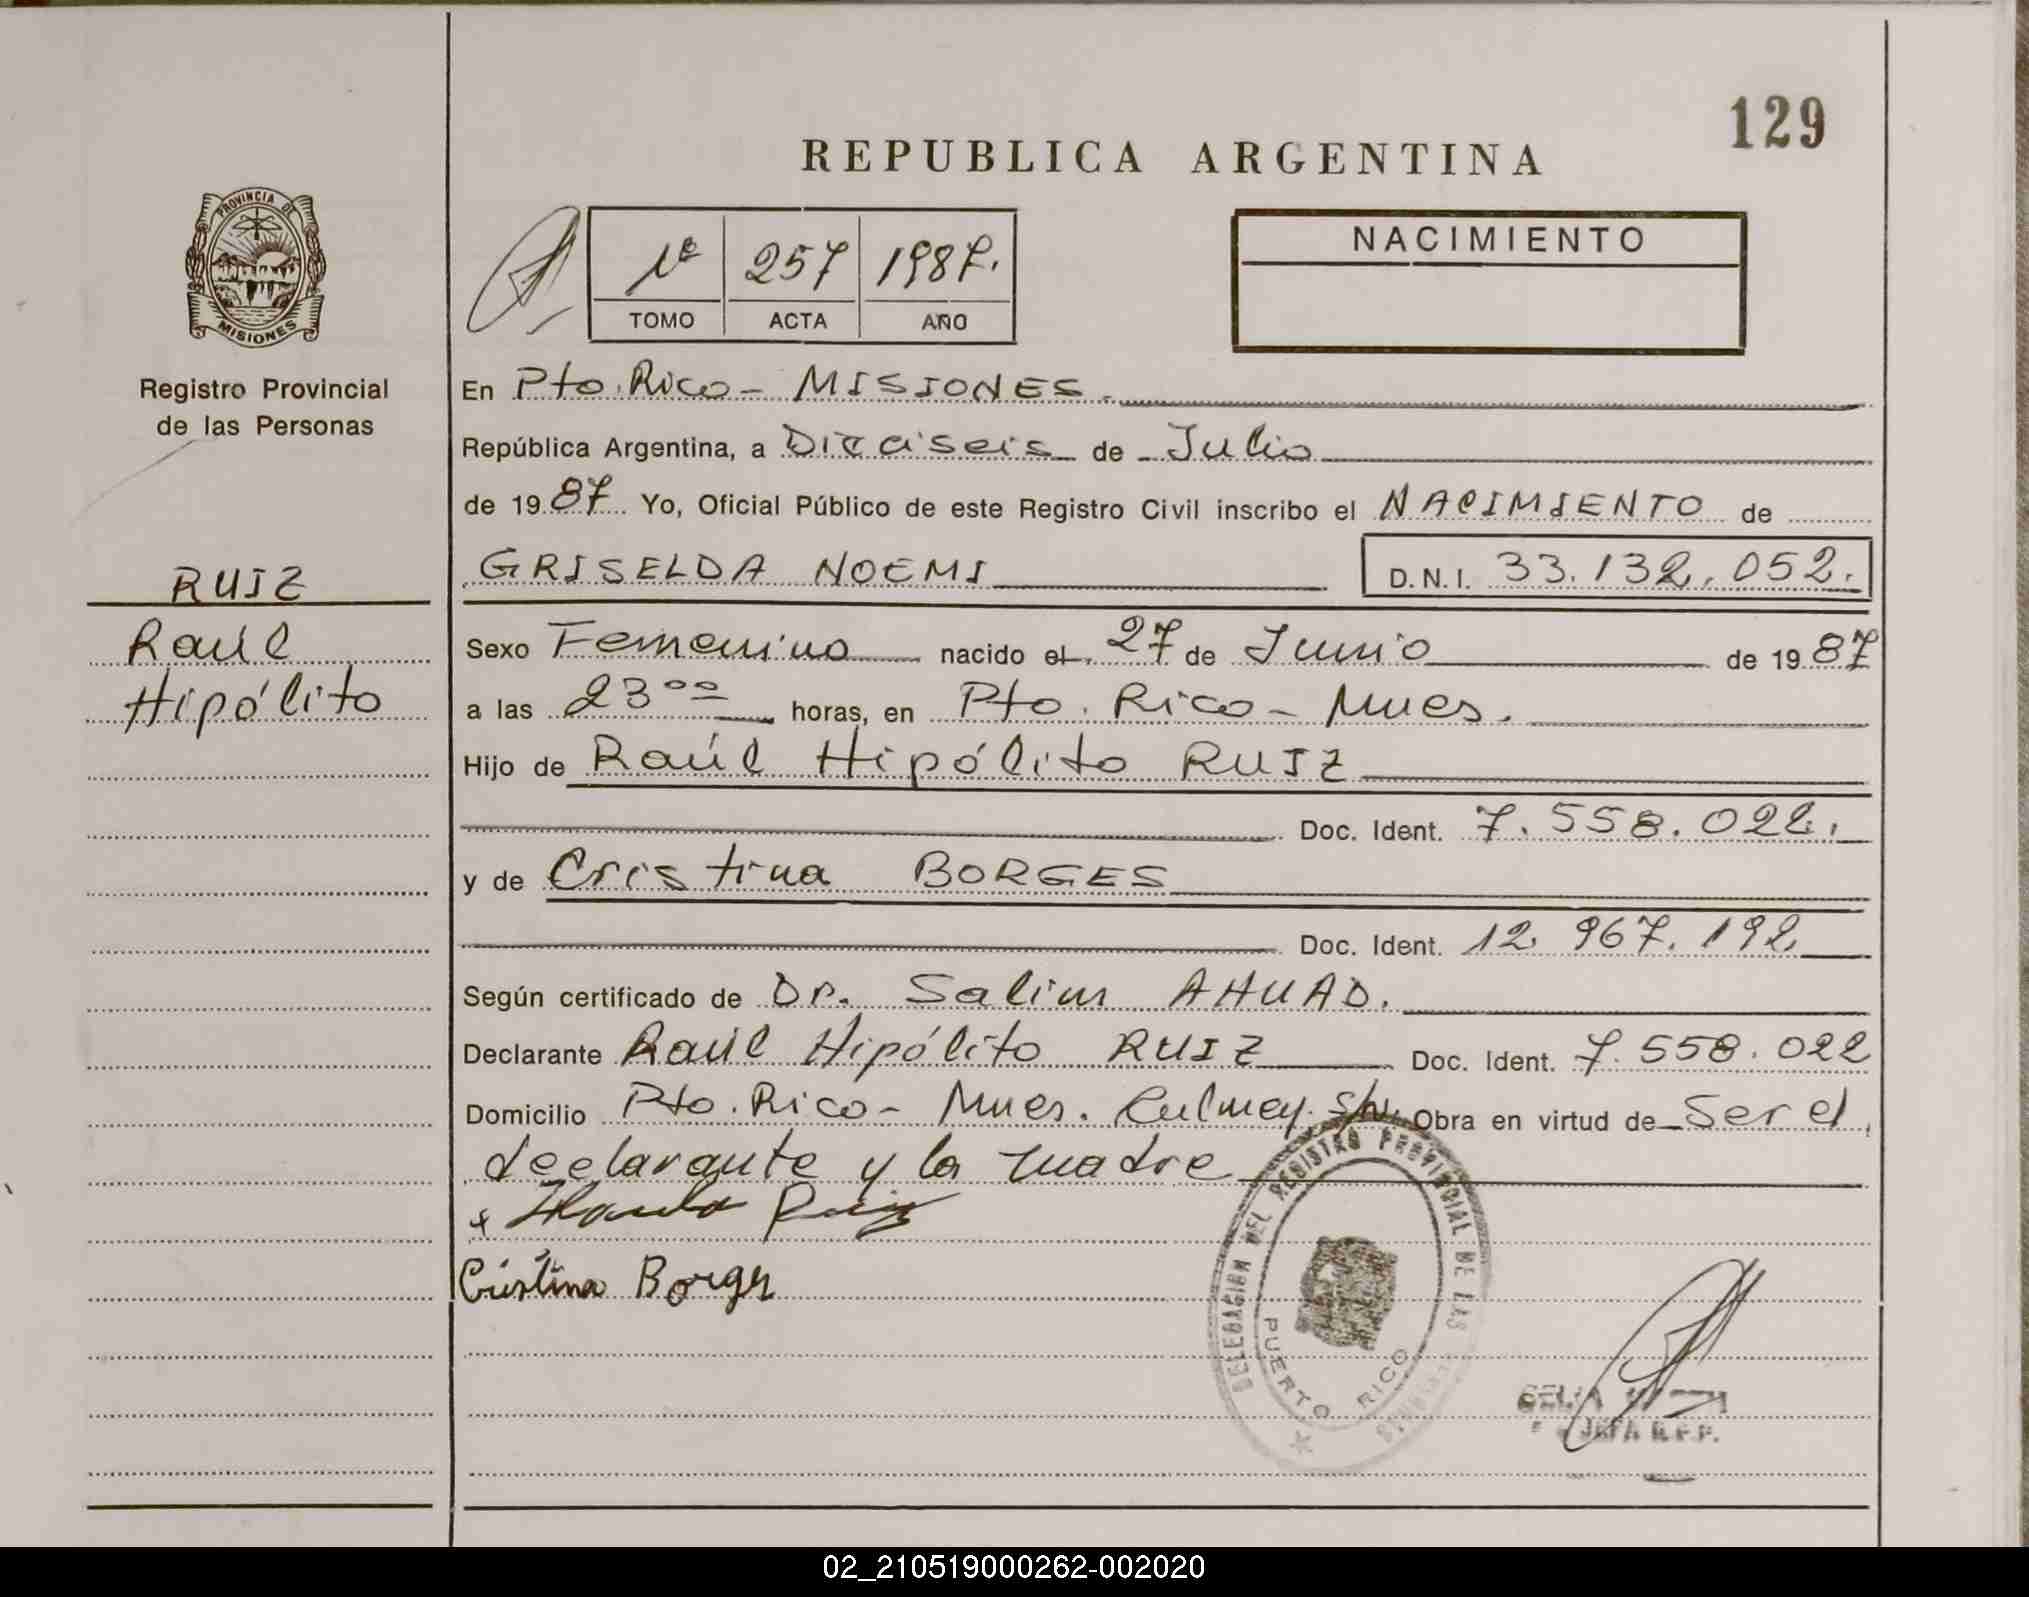 129
REPUBLICA ARGENTINA
PROVINCIA DE
MISIONES
Registro Provincial
de las Personas
1º 257 1987.
TOMO ACTA AÑO
NACIMIENTO
En Pto. Rico - MISIONES.
República Argentina, a Dieciseis de Julio
de 1987 Yo, Oficial Público de este Registro Civil inscribo el NACIMIENTO de
GRISELDA NOEMI D.N.I. 33.132.052.
RUIZ
Raúl
Hipólito
Sexo Femenino nacido el 27 de Junio de 1987
a las 23 ⁰⁰ horas, en Pto. Rico - Mnes.
Hijo de Raúl Hipólito RUIZ
Doc. Ident. 7.558.022.
y de Cristina BORGES
Doc. Ident. 12.967.192.
Según certificado de Dr. Salim AHUAD.
Declarante Raúl Hipólito RUIZ Doc. Ident. 7.558.022
Domicilio Pto. Rico - Mnes. Culmey. s/n. Obra en virtud de Ser el
declarante y la madre
Ruiz
Cristina Borges
DELEGACION DEL REGISTRO PROVINCIAL DE LAS
PUERTO RICO
JEFA R.P.P.
02_210519000262-002020